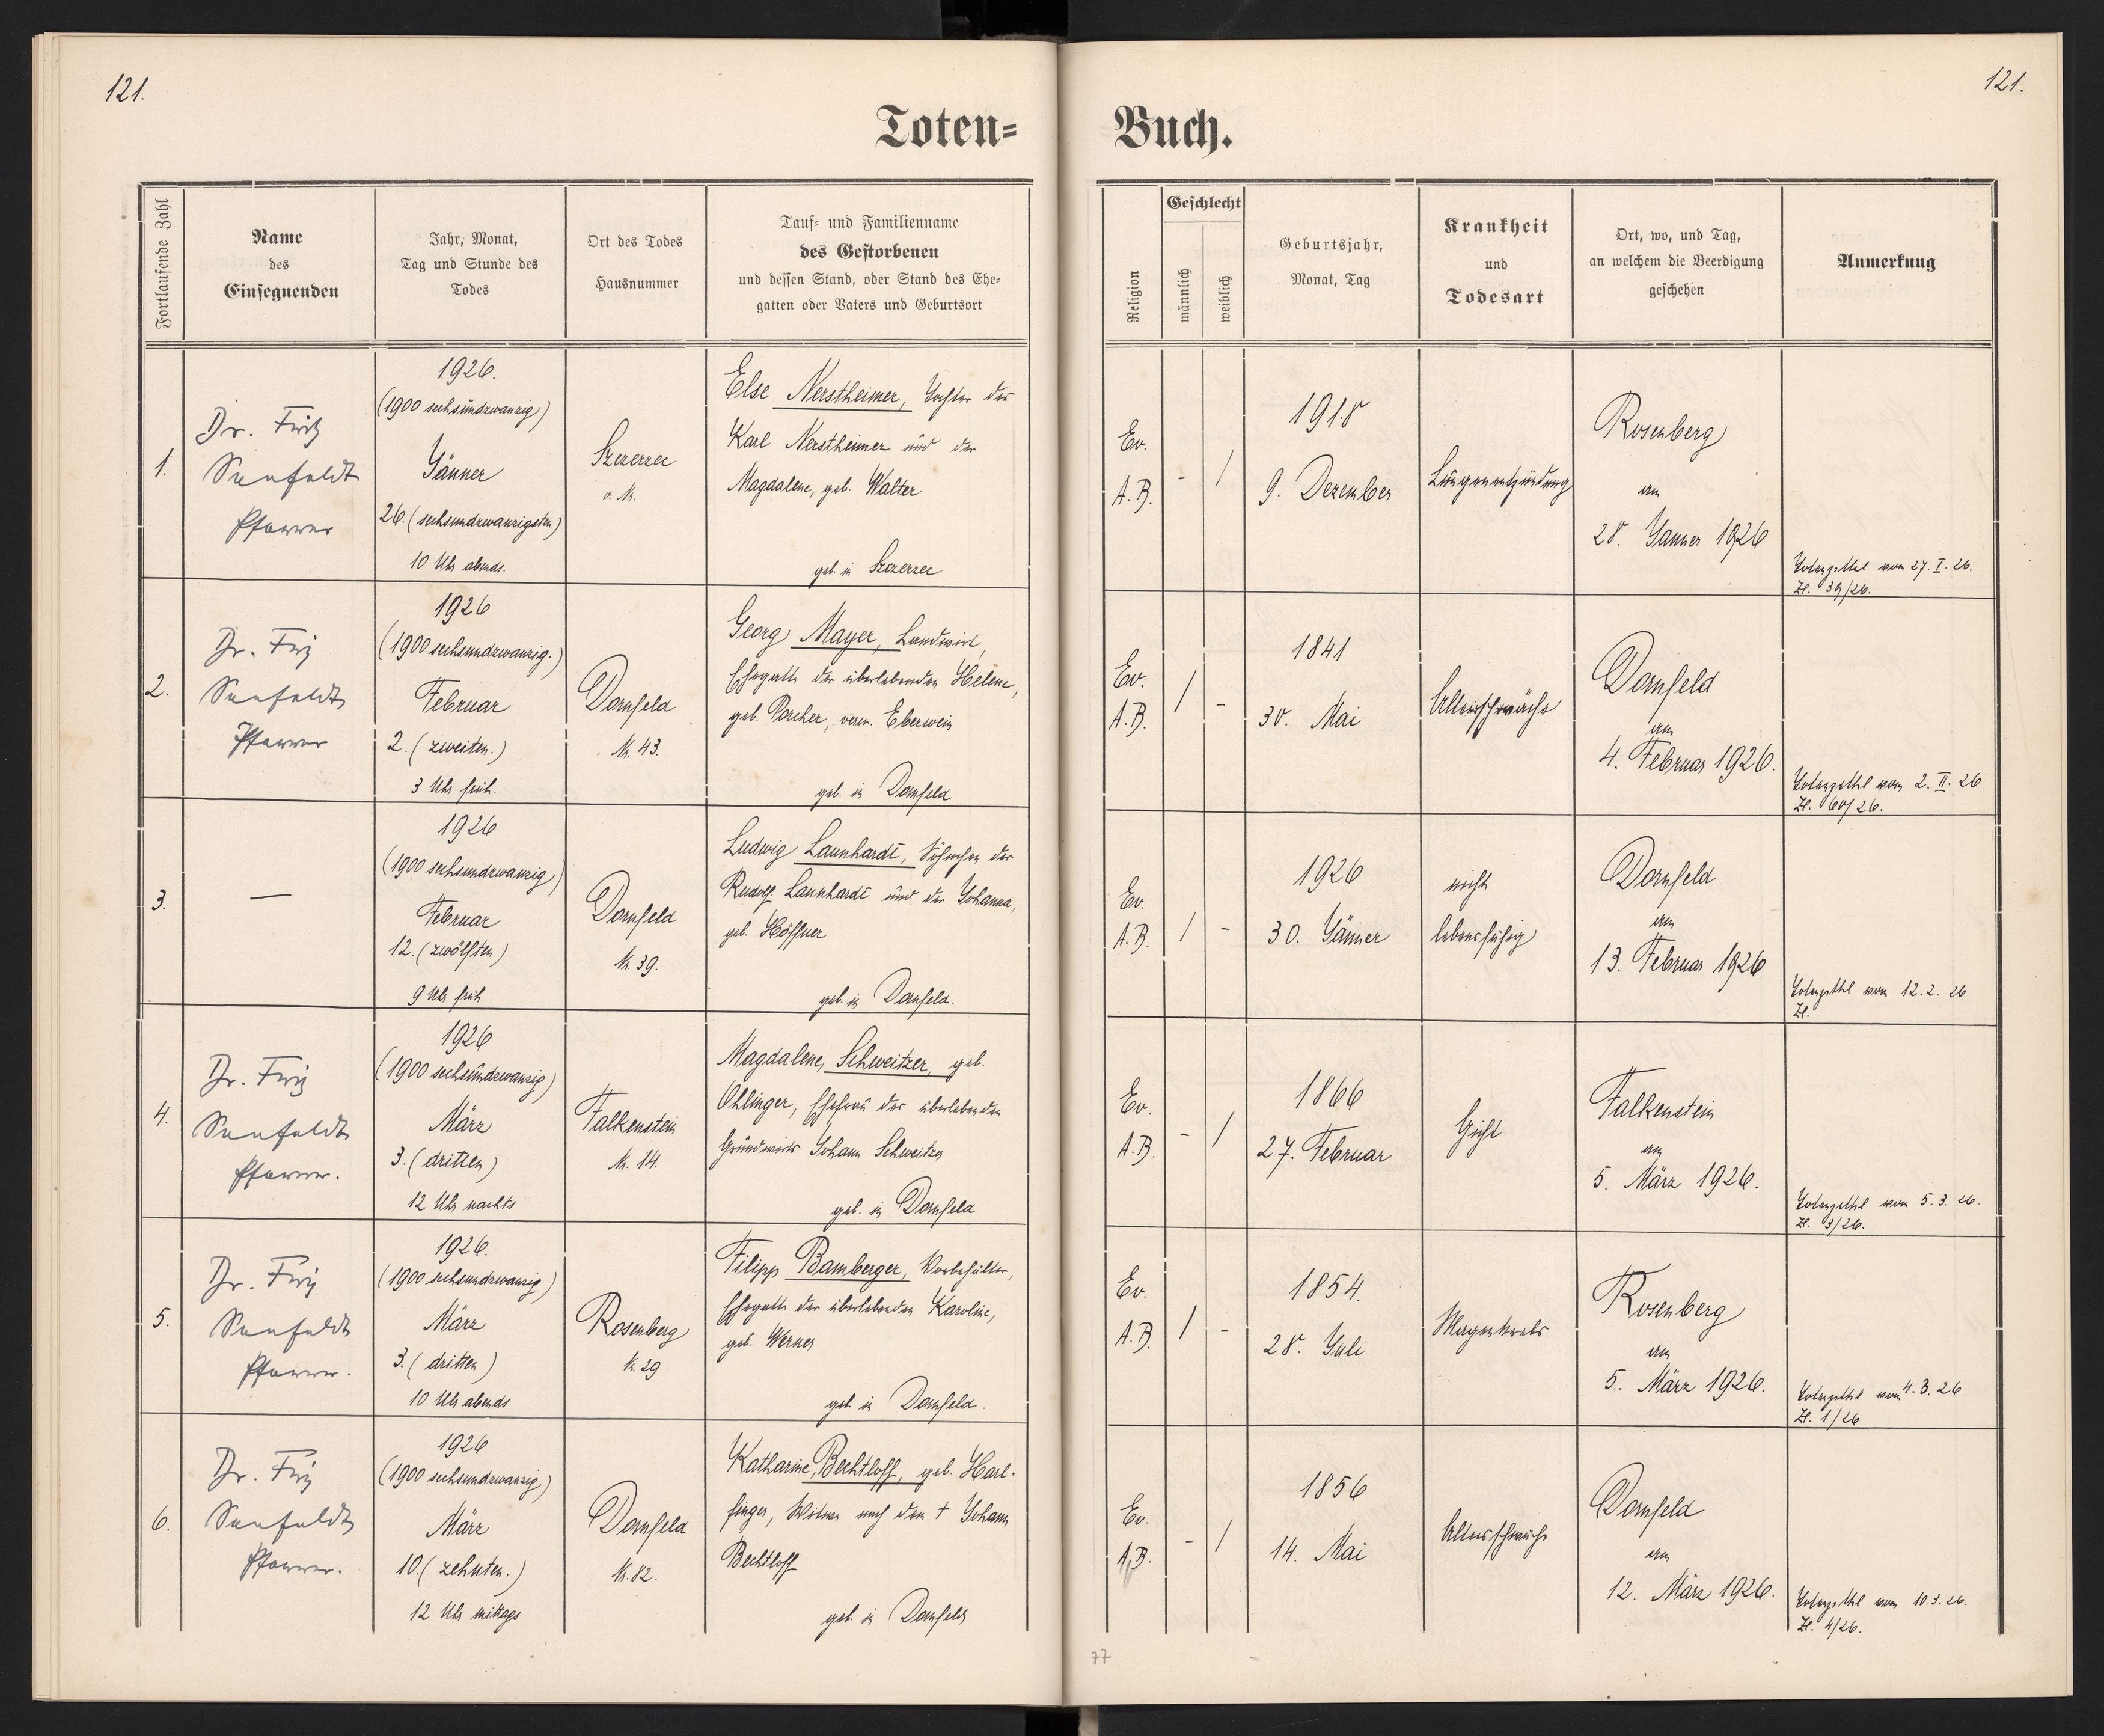 121.
121.
Toten=
Buch.
Fortlaufende Zahl
Name
des
Einsegnenden
Jahr, Monat,
Tag und Stunde des
Todes
Ort des Todes
Hausnummer
Tauf= und Familienname
des Gestorbenen
und dessen Stand, oder Stand des Ehe=
gatten oder Vaters und Geburtsort
Religion
Geschlecht
männlich
weiblich
Geburtsjahr,
Monat, Tag
Krankheit
und
Todesart
Ort, wo, und Tag,
an welchem die Beerdigung
geschehen
Anmerkung
1.
Dr. Fritz
Seefeldt
Pfarrer
1926.
(1900 sechsundzwanzig)
Jänner
26. (sechsundzwanzigsten)
10 Uhr abends.
Szczerzec
o. Nr.
Else Nerstheimer, Tochter des
Karl Nerstheimer und der
Magdalene, geb. Walter
geb. in Szczerzec
Ev.
A.B.
- /
1918
9. Dezember
Lungenentzündung
Rosenberg
am
28. Jänner 1926
Totenzettel vom 27. I. 26.
Zl. 39/26.
2.
Dr. Fritz
Seefeldt
Pfarrer
1926
(1900 sechsundzwanzig.)
Februar
2. (zweiten.)
3 Uhr früh.
Dornfeld
Nr. 43.
Georg Mayer, Landwirt,
Ehegatte der überlebenden Helene,
geb. Porcher, verw. Eberwein
geb. in Dornfeld
Ev.
A.B.
/ -
1841
30. Mai
Altersschwäche
Dornfeld
am
4. Februar 1926.
Totenzettel vom 2. II. 26
Zl. 60/26.
3.
—
1926
(1900 sechsundzwanzig)
Februar
12. (zwölften)
9 Uhr früh
Dornfeld
Nr. 39.
Ludwig Launhardt, Söhnchen des
Rudolf Launhardt und der Johanna,
geb. Höffner
geb. in Dornfeld.
Ev.
A.B.
/ -
1926
30. Jänner
nicht
lebensfähig
Dornfeld
am
13. Februar 1926
Totenzettel vom 12. 2. 26
Zl.
4.
Dr. Fritz
Seefeldt
Pfarrer.
1926
(1900 sechsundzwanzig)
März
3. (dritten)
12 Uhr nachts
Falkenstein
Nr. 14.
Magdalene, Schweitzer, geb.
Ohlinger, Ehefrau des überlebenden
Grundwirts Johann Schweitzer
geb. in Dornfeld
Ev.
A.B.
- /
1866
27. Februar
Gicht
Falkenstein
am
5. März 1926.
Totenzettel vom 5. 3. 26.
Zl. 3/26.
5.
Dr. Fritz
Seefeldt
Pfarrer.
1926.
(1900 sechsundzwanzig)
März
3. (dritten)
10 Uhr abends
Rosenberg
Nr. 29
Filipp Bamberger, Vorbehälter,
Ehegatte der überlebenden Karoline,
geb. Werner
geb. in Dornfeld.
Ev.
A.B.
/ -
1854.
28. Juli
Magenkrebs
Rosenberg
am
5. März 1926.
Totenzettel vom 4. 3. 26
Zl. 1/26
6.
Dr. Fritz
Seefeldt
Pfarrer.
1926
(1900 sechsundzwanzig)
März
10. (zehnten.)
12 Uhr mittags
Dornfeld
Nr. 82.
Katharine, Bechtloff, geb. Harl-
finger, Witwe nach dem † Johann
Bechtloff
geb. in Dornfeld
Ev.
A.B.
- /
1856
14. Mai
Altersschwäche
Dornfeld
am
12. März 1926.
Totenzettel vom 10. 3. 26.
Zl. 4/26.
77